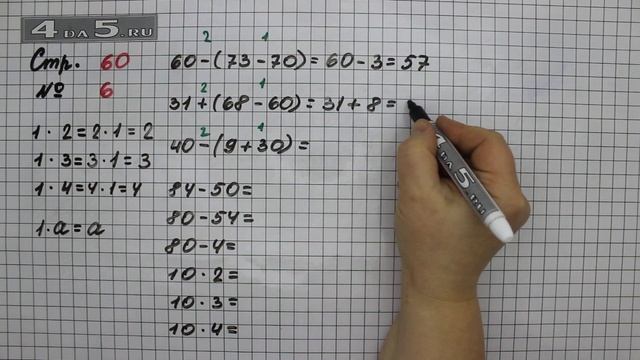 4 да 5.ru
Стр. 60
№ 6
1 · 2 = 2 · 1 = 2
1 · 3 = 3 · 1 = 3
1 · 4 = 4 · 1 = 4
1 · a = a
2 1
60 - (73 - 70) = 60 - 3 = 57
2 1
31 + (68 - 60) = 31 + 8 =
2 1
40 - (9 + 30) =
84 - 50 =
80 - 54 =
80 - 4 =
10 · 2 =
10 · 3 =
10 · 4 =
4 да 5.ru